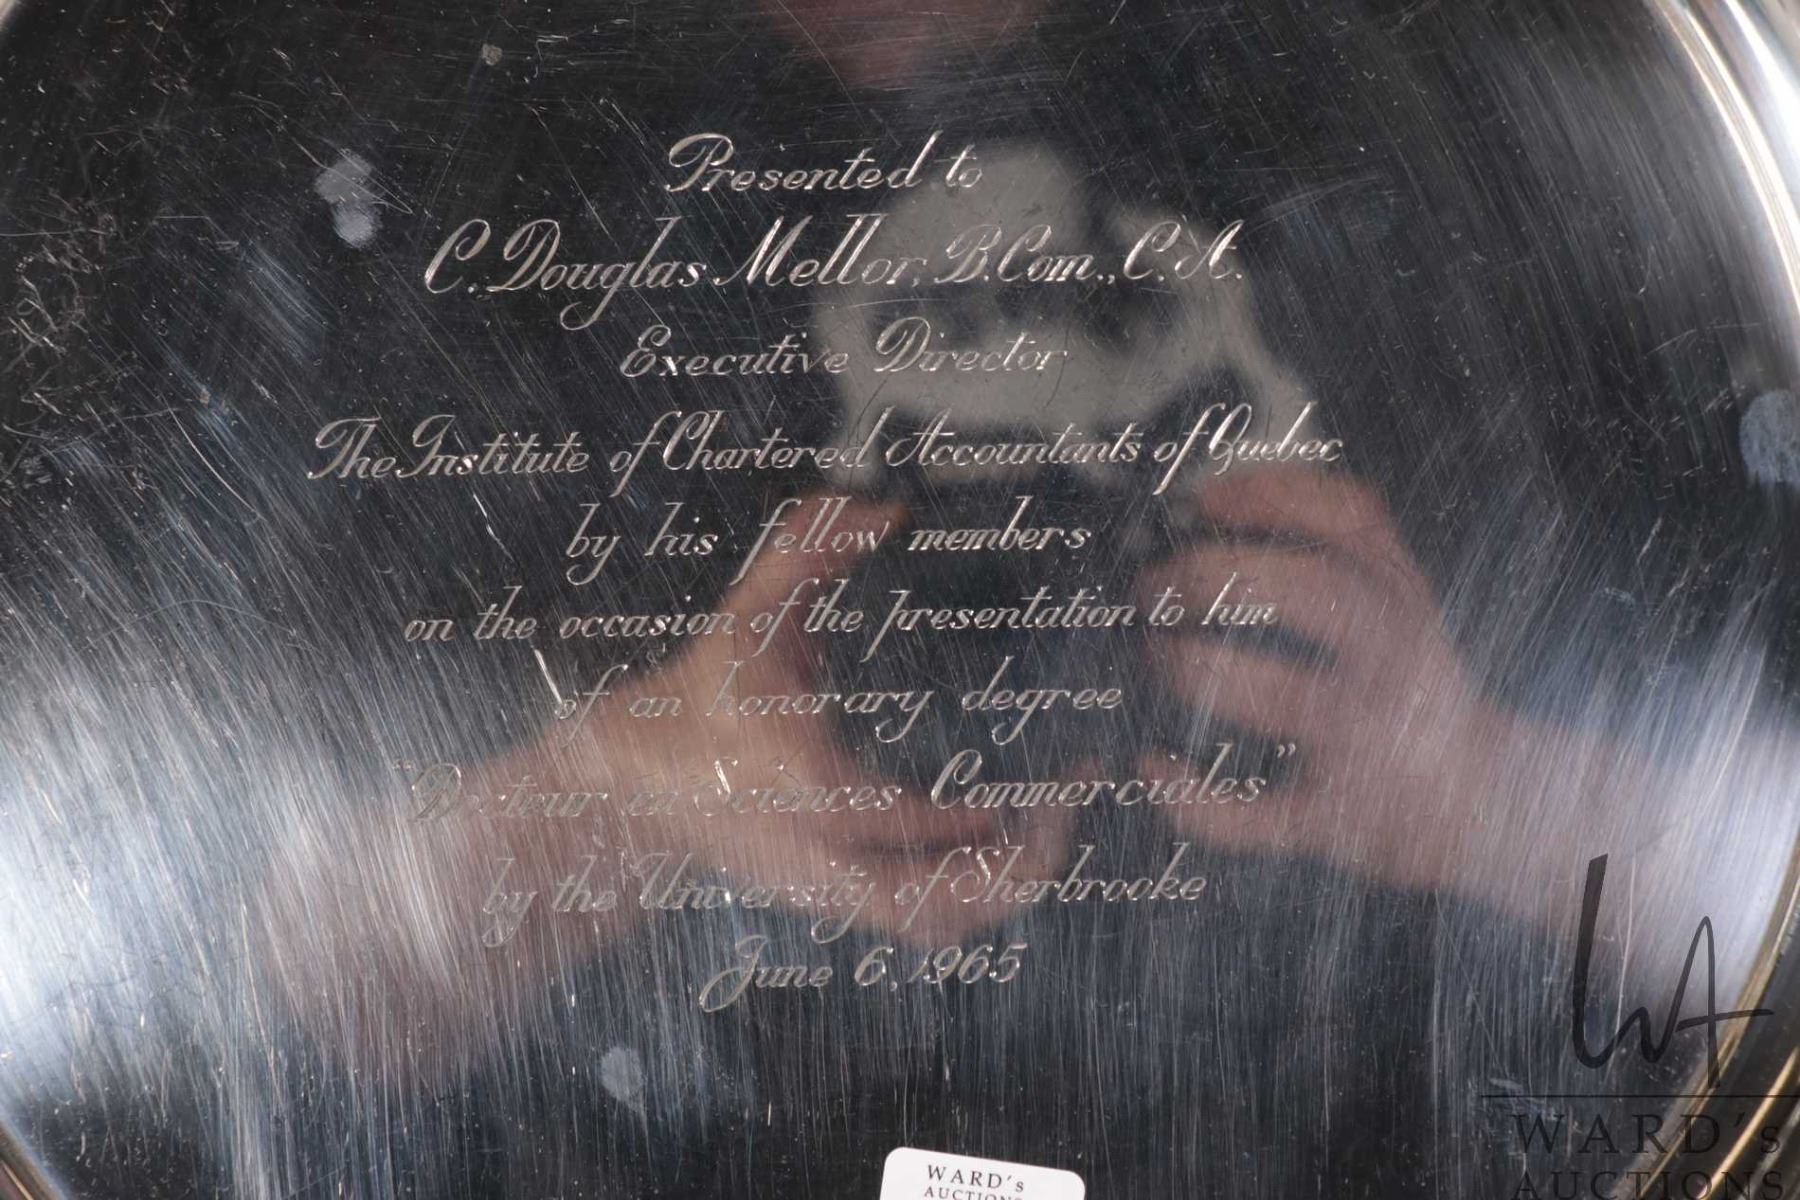 Presented to
C. Douglas Mellor, B.Com., C.A.
Executive Director
The Institute of Chartered Accountants of Quebec
by his fellow members
on the occasion of the presentation to him
of an honorary degree
"Docteur en Sciences Commerciales"
by the University of Sherbrooke
June 6, 1965
WA
WARD's
AUCTIONS
WARD's
AUCTIONS